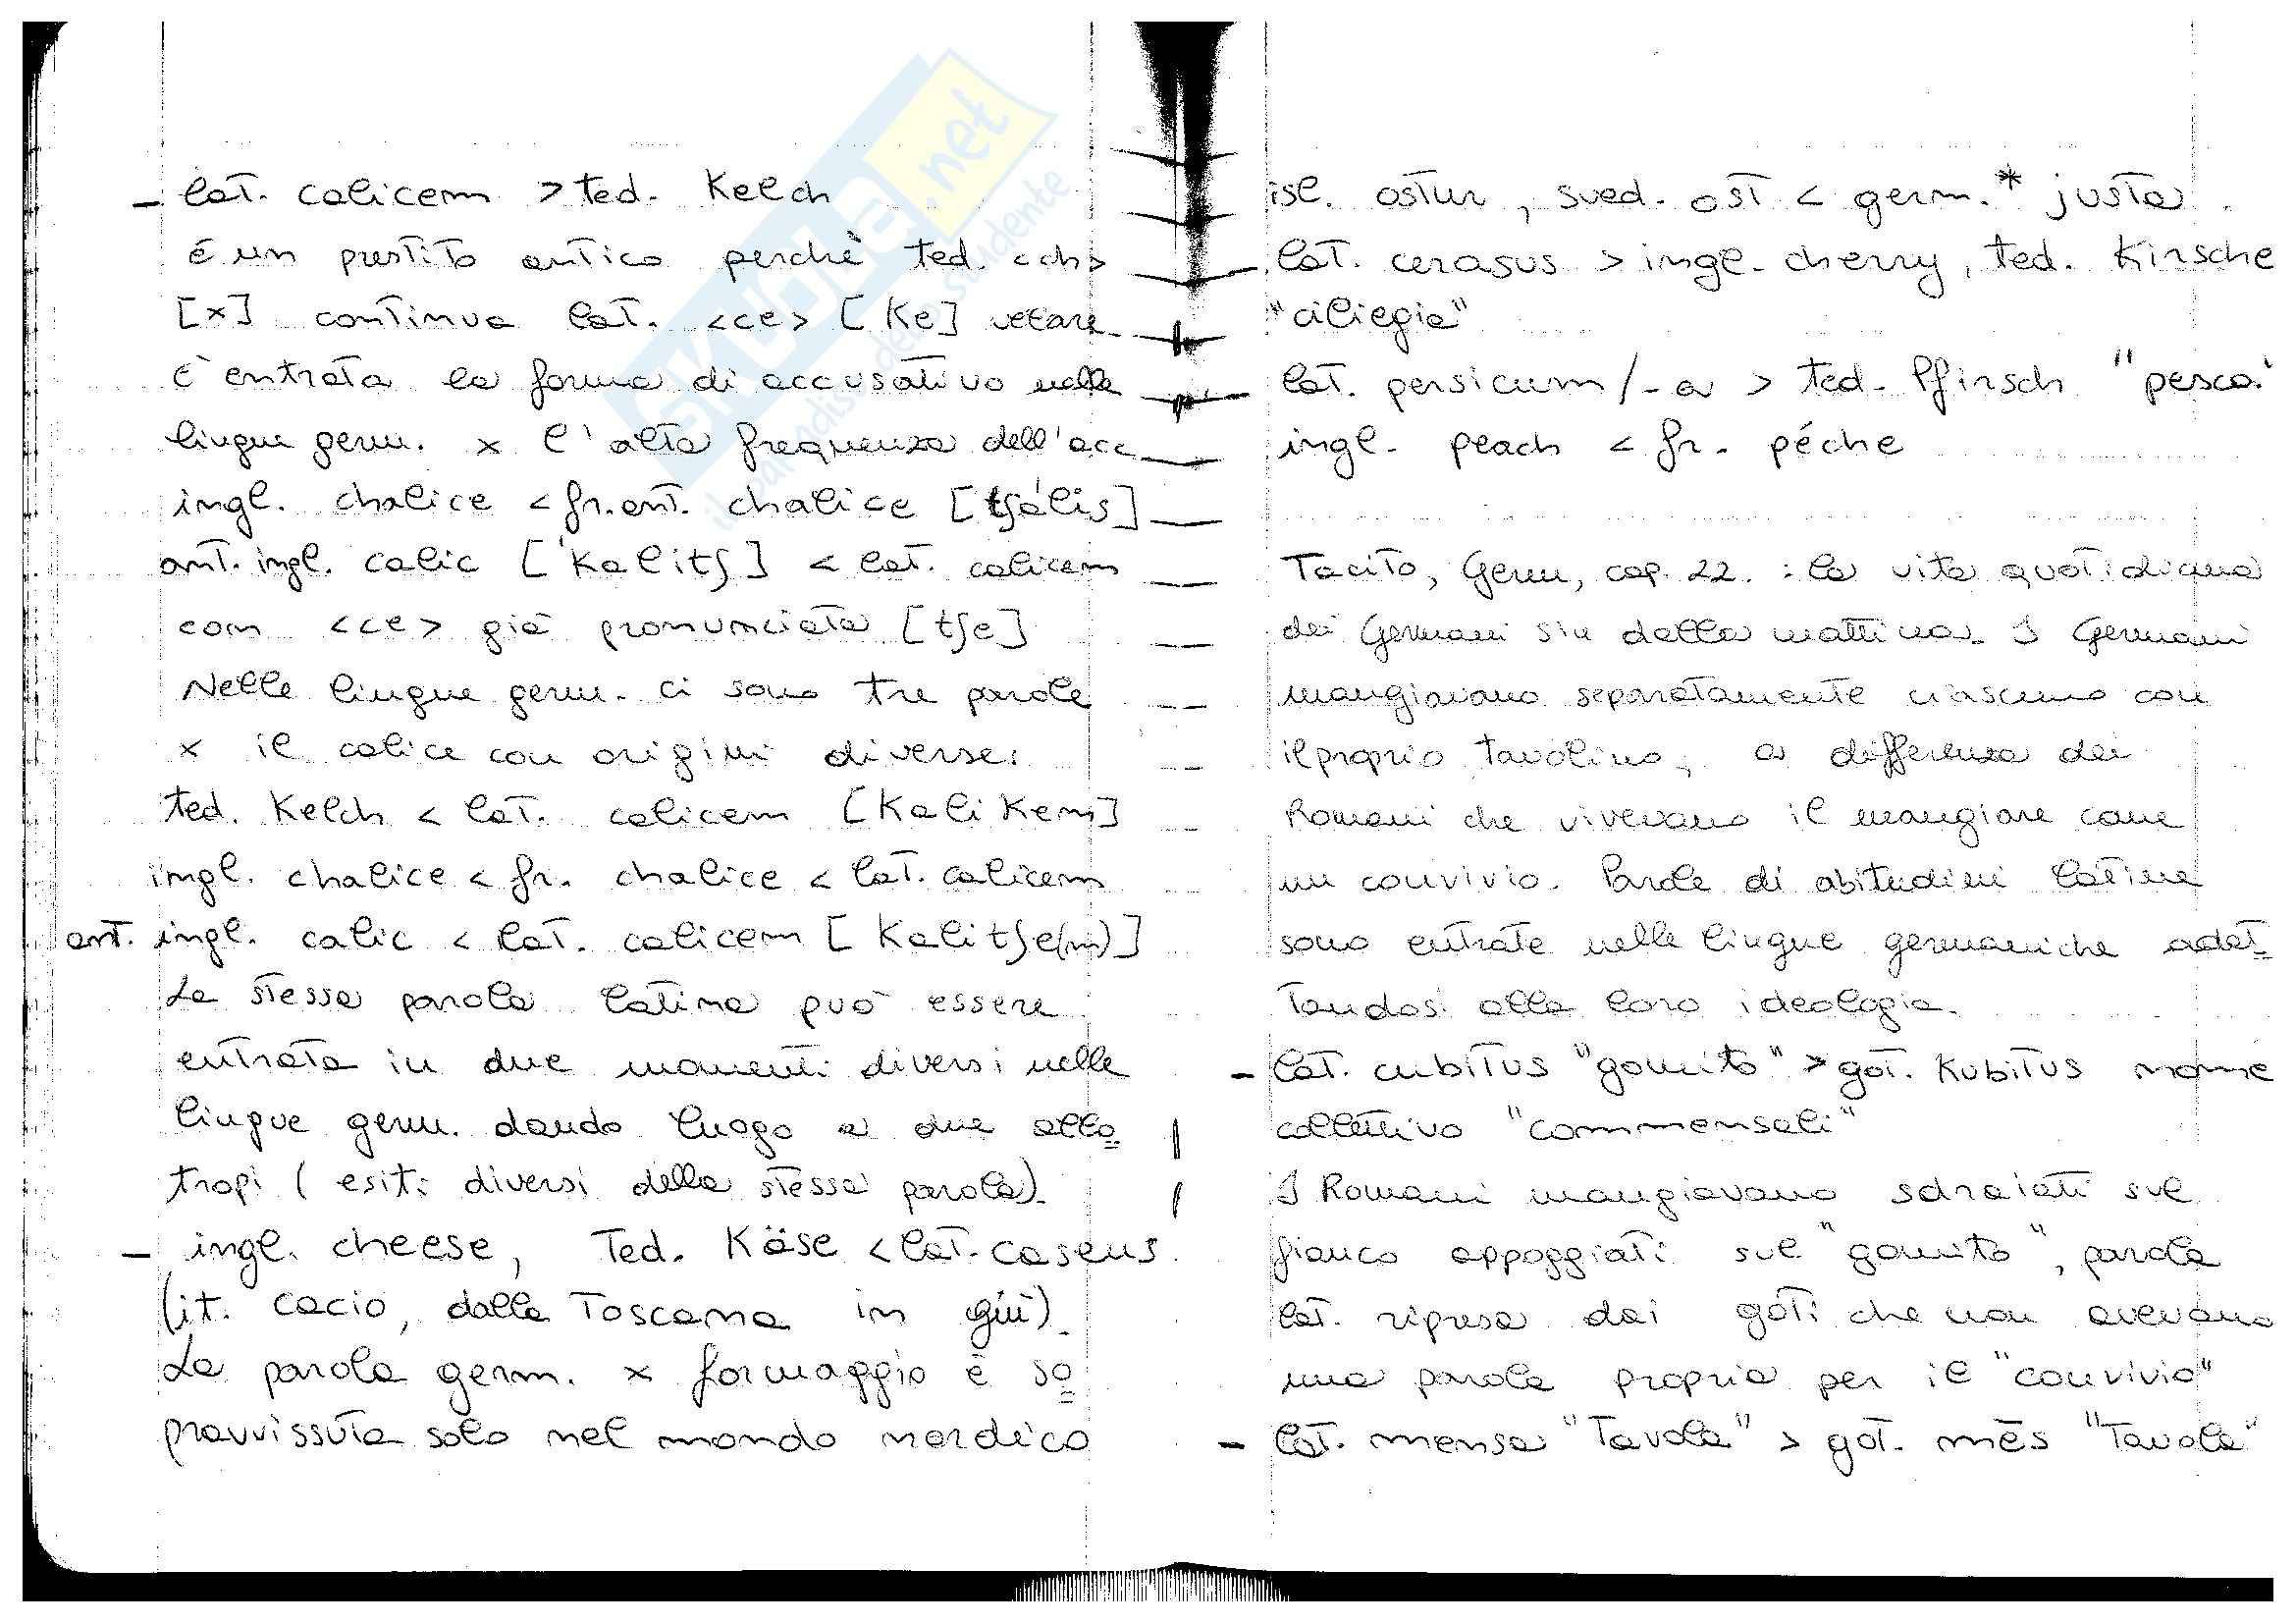 – lat. calicem > ted. Kelch
è un prestito antico perchè ted. <ch>
[x] continua lat. <ce> [Ke] velare
È entrata la forma di accusativo nelle
lingue germ. x l'alta frequenza dell'acc
ingl. chalice < fr.ant. chalice [tʃális]
ant. ingl. calic ['kalitʃ] < lat. calicem
con <ce> già pronunciata [tʃe]
Nelle lingue germ. ci sono tre parole
x il calice con origini diverse:
ted. Kelch < lat. calicem [KaliKem]
ingl. chalice < fr. chalice < lat. calicem
ant. ingl. calic < lat. calicem [Kalitʃe(m)]
La stessa parola latina può essere
entrata in due momenti diversi nelle
lingue germ. dando luogo a due allo=
tropi (esiti diversi della stessa parola).
– ingl. cheese, Ted. Käse < lat. caseus
(it. cacio, dalla Toscana in giù).
La parola germ. x formaggio è so=
pravvissuta solo nel mondo nordico
isl. ostur, sved. ost < germ. * justa.
– lat. cerasus > ingl. cherry, ted. Kirsche
"ciliegia"
– lat. persicum/-a > ted. Pfirsch "pesca"
ingl. peach < fr. péche
Tacito, Germ, cap. 22. : la vita quotidiana
dei Germani sin dalla mattina. I Germani
mangiavano separatamente ciascuno con
il proprio tavolino, a differenza dei
Romani che vivevano il mangiare come
un convivio. Parole di abitudini latine
sono entrate nelle lingue germaniche adat=
tandosi alla loro ideologia.
– lat. cubitus "gomito" > got. Kubitus nome
collettivo "commensali"
I Romani mangiavano sdraiati sul
fianco appoggiati sul "gomito", parola
lat. ripresa dai goti che non avevano
una parola propria per il "convivio"
– lat. mensa "Tavola" > got. mēs "Tavola"
SKUOLA.net
il paradiso dello studente